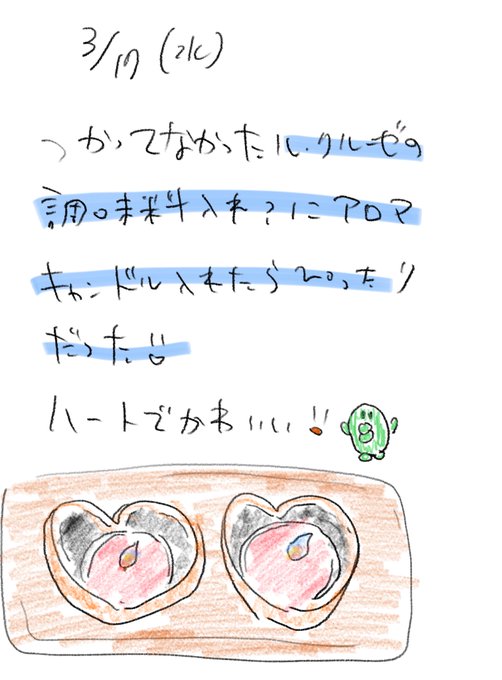 3/17(水)
つかってなかったル・クルーゼの
調味料入れ?にアロマ
キャンドル入れたらぴったり
だった
ハートでかわいい!!